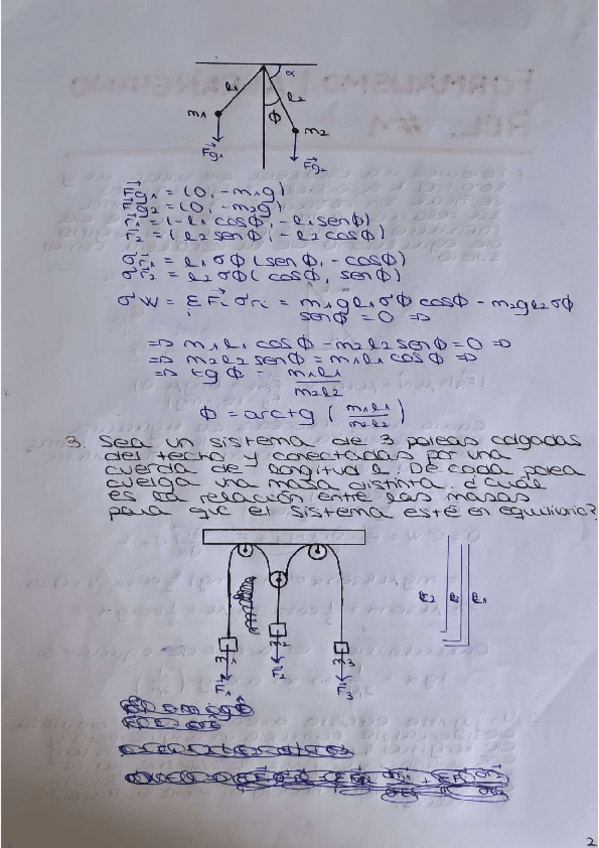 α
l₁
l₂
ϕ
m₁
m₂
Fg₁
Fg₂
Fg₁ = (0, -m₁g)
Fg₂ = (0, -m₂g)
r₁ = (-l₁ cosϕ, -l₁ senϕ)
r₂ = (l₂ senϕ, -l₂ cosϕ)
σr₁ = l₁ σϕ (senϕ, -cosϕ)
σr₂ = l₂ σϕ (cosϕ, senϕ)
σW = Σ Fi σri = m₁gl₁σϕ cosϕ - m₂gl₂σϕ
senϕ = 0 ⇒
⇒ m₁l₁ cosϕ - m₂l₂ senϕ = 0 ⇒
⇒ m₂l₂ senϕ = m₁l₁ cosϕ ⇒
⇒ tgϕ = m₁l₁/m₂l₂
ϕ = arctg (m₁l₁/m₂l₂)
3. Sea un sistema de 3 poleas colgadas
del techo y conectadas por una
cuerda de longitud l. De cada polea
cuelga una masa distinta. ¿Cuál
es la relación entre las masas
para que el sistema esté en equilibrio?
F₁
F₂
F₃
2